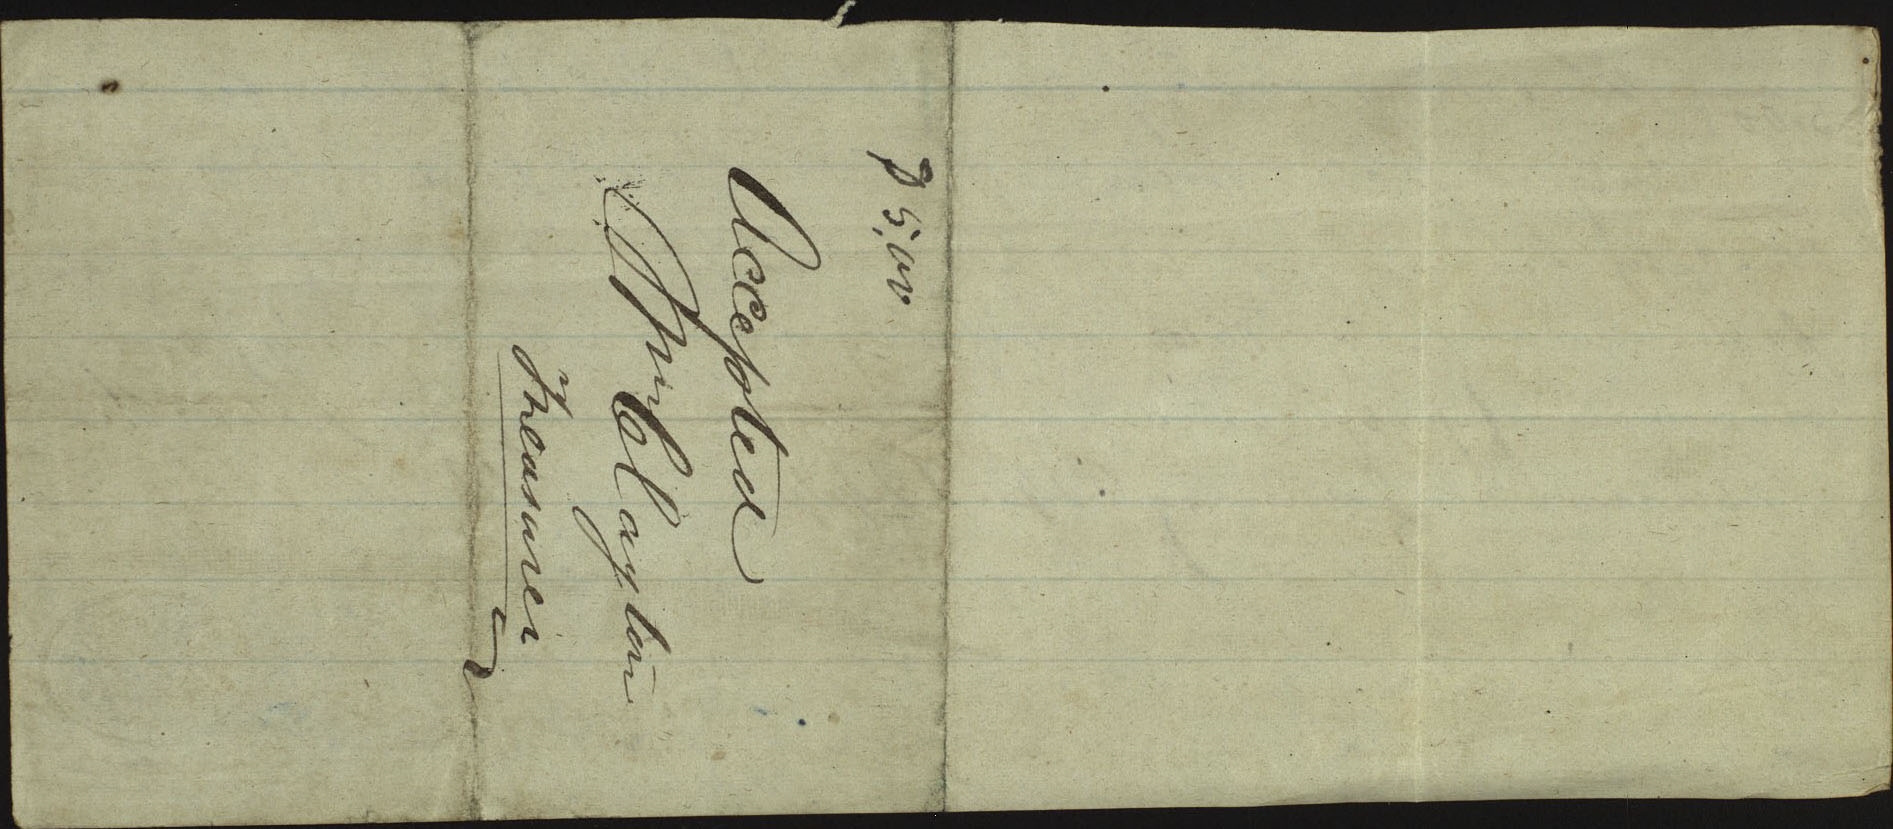 $5,00
Accepted
Wm Clayton
Treasurer